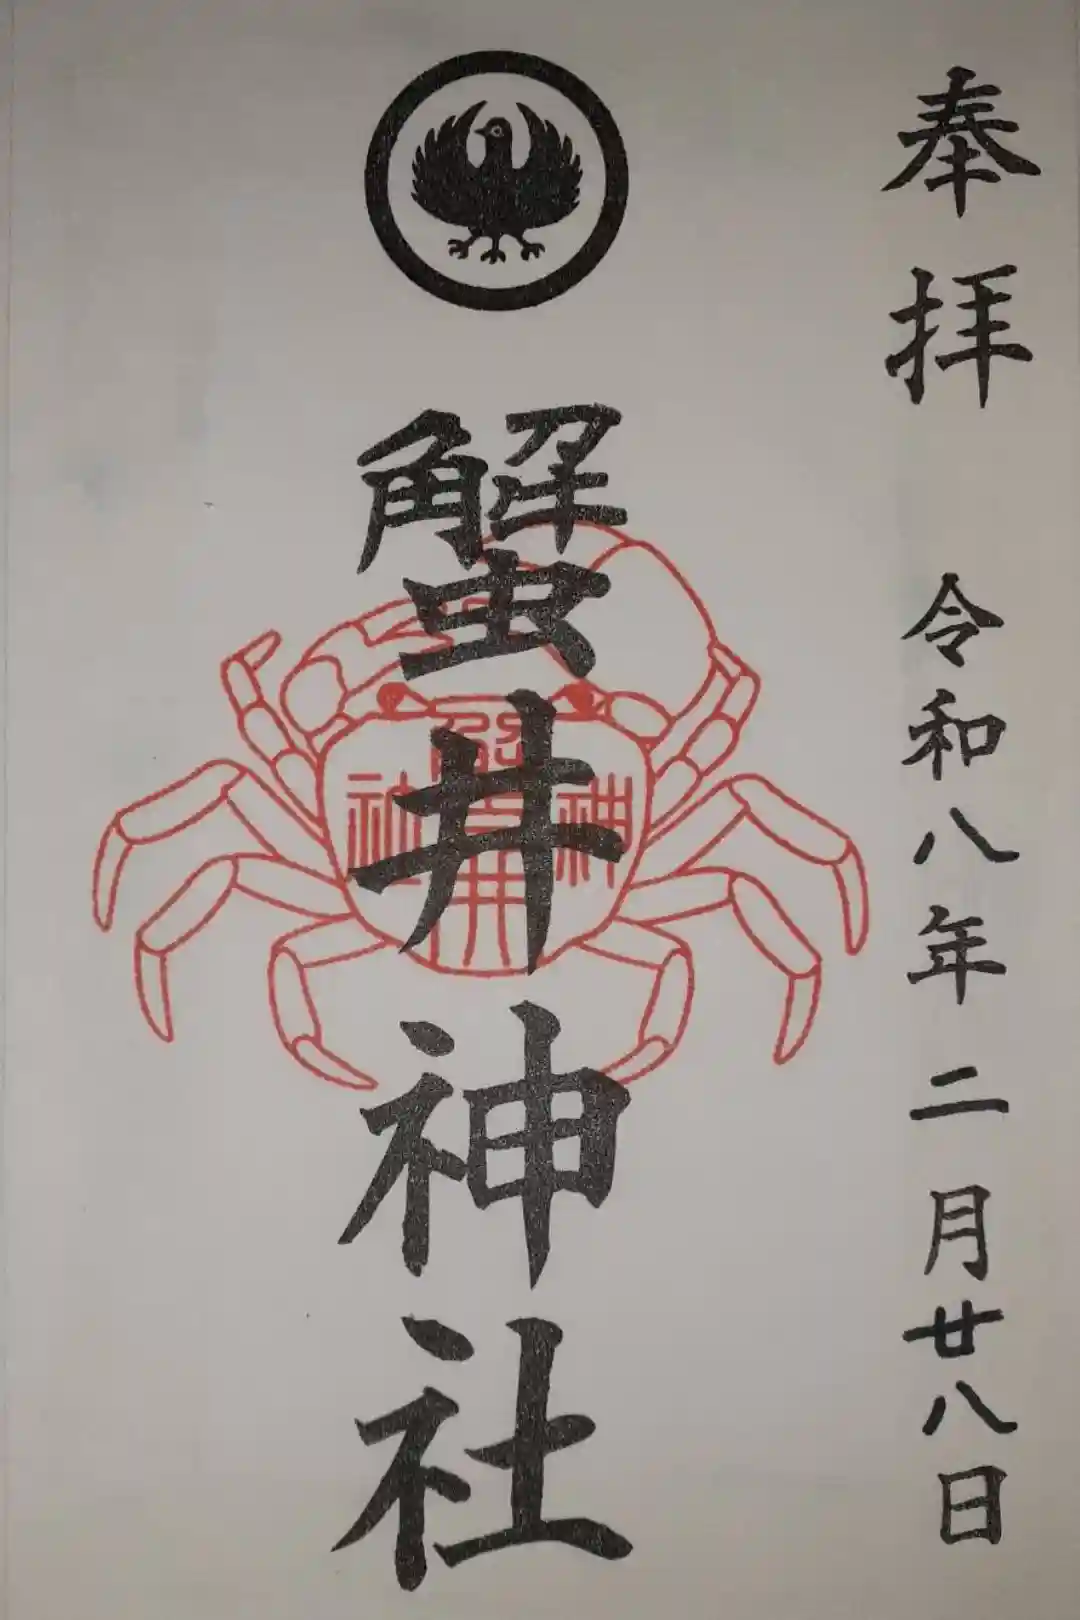 奉拝
令和八年二月廿八日
蟹井神社
蟹井
神
社